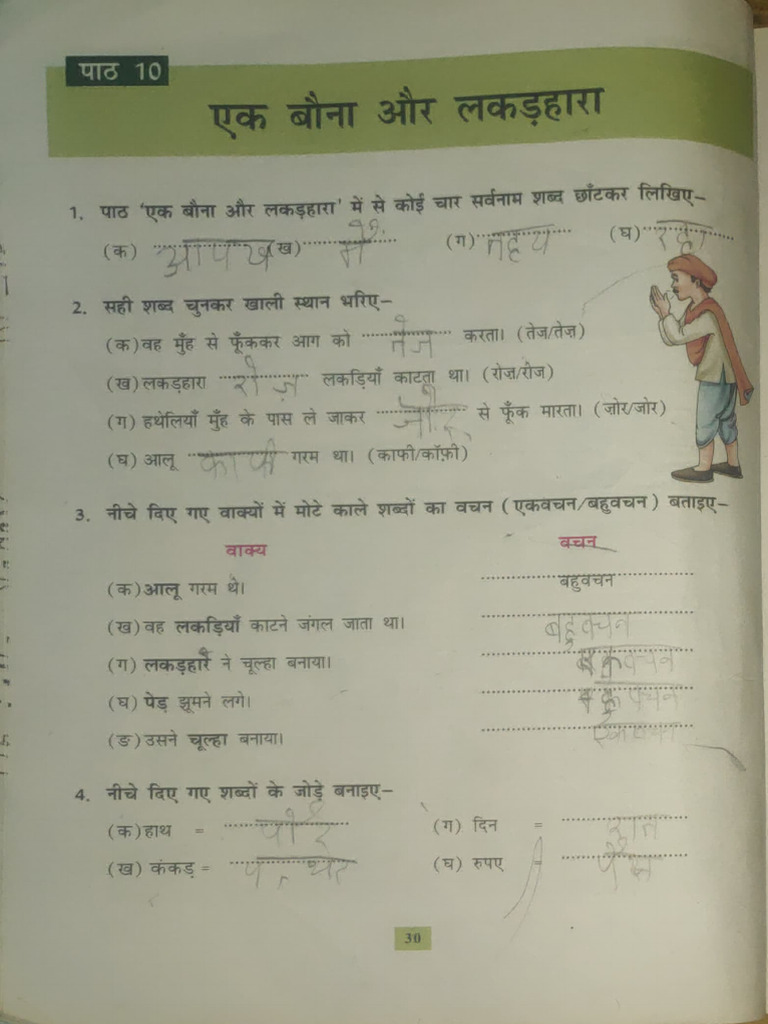 पाठ 10
एक बौना और लकड़हारा
1. पाठ 'एक बौना और लकड़हारा' में से कोई चार सर्वनाम शब्द छाँटकर लिखिए–
(क) (ख) (ग) (घ)
2. सही शब्द चुनकर खाली स्थान भरिए–
(क) वह मुँह से फूँककर आग को तेज करता। (तेज/तेज़)
(ख) लकड़हारा रोज़ लकड़ियाँ काटता था। (रोज़/रोज)
(ग) हथेलियाँ मुँह के पास ले जाकर से फूँक मारता। (ज़ोर/जोर)
(घ) आलू काफी गरम था। (काफी/कॉफ़ी)
3. नीचे दिए गए वाक्यों में मोटे काले शब्दों का वचन (एकवचन/बहुवचन) बताइए–
वाक्य वचन
(क) आलू गरम थे। बहुवचन
(ख) वह लकड़ियाँ काटने जंगल जाता था। बहुवचन
(ग) लकड़हारे ने चूल्हा बनाया। एकवचन
(घ) पेड़ झूमने लगे।
(ङ) उसने चूल्हा बनाया। एकवचन
4. नीचे दिए गए शब्दों के जोड़े बनाइए–
(क) हाथ = (ग) दिन = रात
(ख) कंकड़ = (घ) रुपए =
30